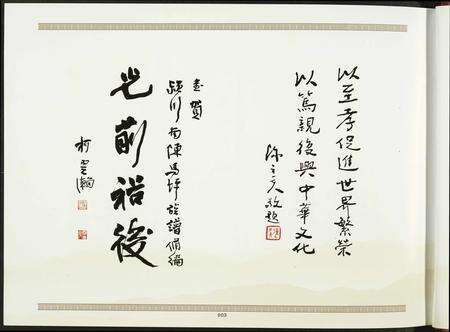 以至孝促進世界繁榮
以篤親後興中華文化
陳立夫敬題
恭賀
潁川南陳馬坪族譜脩編
光前裕後
柯
003